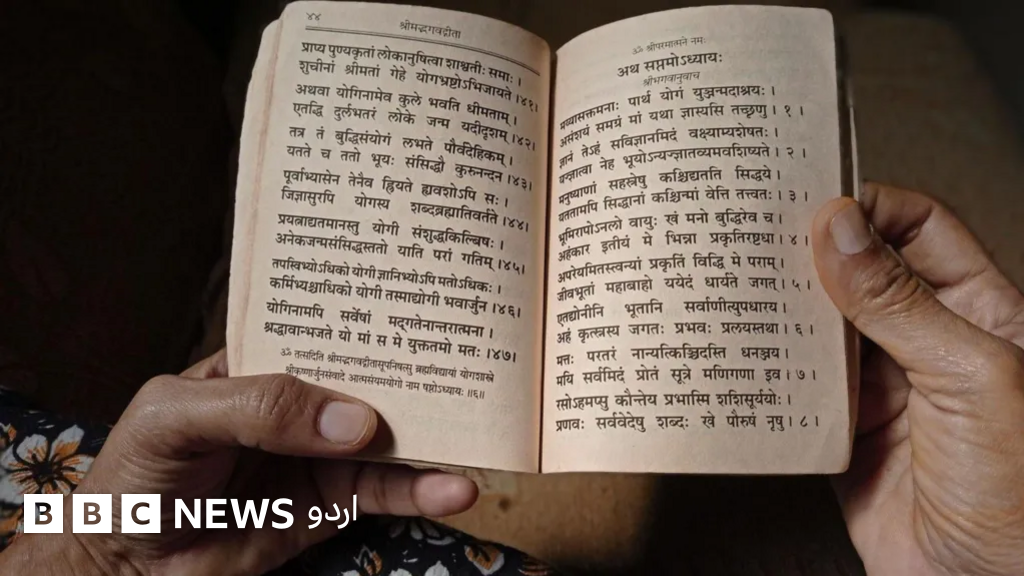 ४४
श्रीमद्भगवद्गीता
प्राप्य पुण्यकृतां लोकानुषित्वा शाश्वतीः समाः ।
शुचीनां श्रीमतां गेहे योगभ्रष्टोऽभिजायते ।४१।
अथवा योगिनामेव कुले भवति धीमताम् ।
एतद्धि दुर्लभतरं लोके जन्म यदीदृशम् ।४२।
तत्र तं बुद्धिसंयोगं लभते पौर्वदेहिकम् ।
यतते च ततो भूयः संसिद्धौ कुरुनन्दन ।४३।
पूर्वाभ्यासेन तेनैव ह्रियते ह्यवशोऽपि सः ।
जिज्ञासुरपि योगस्य शब्दब्रह्मातिवर्तते ।४४।
प्रयत्नाद्यतमानस्तु योगी संशुद्धकिल्बिषः ।
अनेकजन्मसंसिद्धस्ततो याति परां गतिम् ।४५।
तपस्विभ्योऽधिको योगी ज्ञानिभ्योऽपि मतोऽधिकः ।
कर्मिभ्यश्चाधिको योगी तस्माद्योगी भवार्जुन ।४६।
योगिनामपि सर्वेषां मद्गतेनान्तरात्मना ।
श्रद्धावान्भजते यो मां स मे युक्ततमो मतः ।४७।
ॐ तत्सदिति श्रीमद्भगवद्गीतासूपनिषत्सु ब्रह्मविद्यायां योगशास्त्रे
श्रीकृष्णार्जुनसंवादे आत्मसंयमयोगो नाम षष्ठोऽध्यायः ॥६॥
ॐ श्रीपरमात्मने नमः
अथ सप्तमोऽध्यायः
श्रीभगवानुवाच
मय्यासक्तमनाः पार्थ योगं युञ्जन्मदाश्रयः ।
असंशयं समग्रं मां यथा ज्ञास्यसि तच्छृणु । १ ।
ज्ञानं तेऽहं सविज्ञानमिदं वक्ष्याम्यशेषतः ।
यज्ज्ञात्वा नेह भूयोऽन्यज्ज्ञातव्यमवशिष्यते । २ ।
मनुष्याणां सहस्रेषु कश्चिद्यतति सिद्धये ।
यततामपि सिद्धानां कश्चिन्मां वेत्ति तत्त्वतः । ३ ।
भूमिरापोऽनलो वायुः खं मनो बुद्धिरेव च ।
अहंकार इतीयं मे भिन्ना प्रकृतिरष्टधा । ४ ।
अपरेयमितस्त्वन्यां प्रकृतिं विद्धि मे पराम् ।
जीवभूतां महाबाहो ययेदं धार्यते जगत् । ५ ।
एतद्योनीनि भूतानि सर्वाणीत्युपधारय ।
अहं कृत्स्नस्य जगतः प्रभवः प्रलयस्तथा । ६ ।
मत्तः परतरं नान्यत्किञ्चिदस्ति धनञ्जय ।
मयि सर्वमिदं प्रोतं सूत्रे मणिगणा इव । ७ ।
रसोऽहमप्सु कौन्तेय प्रभास्मि शशिसूर्ययोः ।
प्रणवः सर्ववेदेषु शब्दः खे पौरुषं नृषु । ८ ।
BBC NEWS اردو